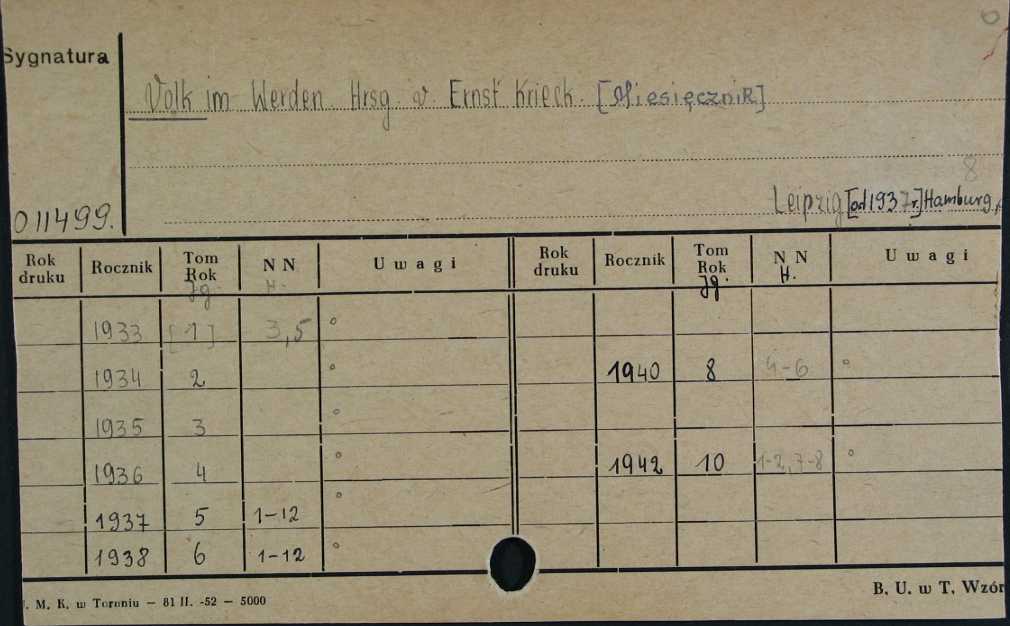 Sygnatura
Volk im Werden. Hrsg. v. Ernst Krieck. [Miesięcznik]
8
Leipzig [od 1937 r.] Hamburg,
011499.
Rok druku Rocznik Tom Rok Jg. N N H. Uwagi Rok druku Rocznik Tom Rok Jg. N N H. Uwagi
1933 [1] 3,5 °
1934 2 ° 1940 8 4-6 °
1935 3 °
1936 4 ° 1942 10 1-2, 7-8 °
1937 5 1-12 °
1938 6 1-12 °
. M. K. w Toruniu — 81 II. -52 — 5000
B. U. w T. Wzór